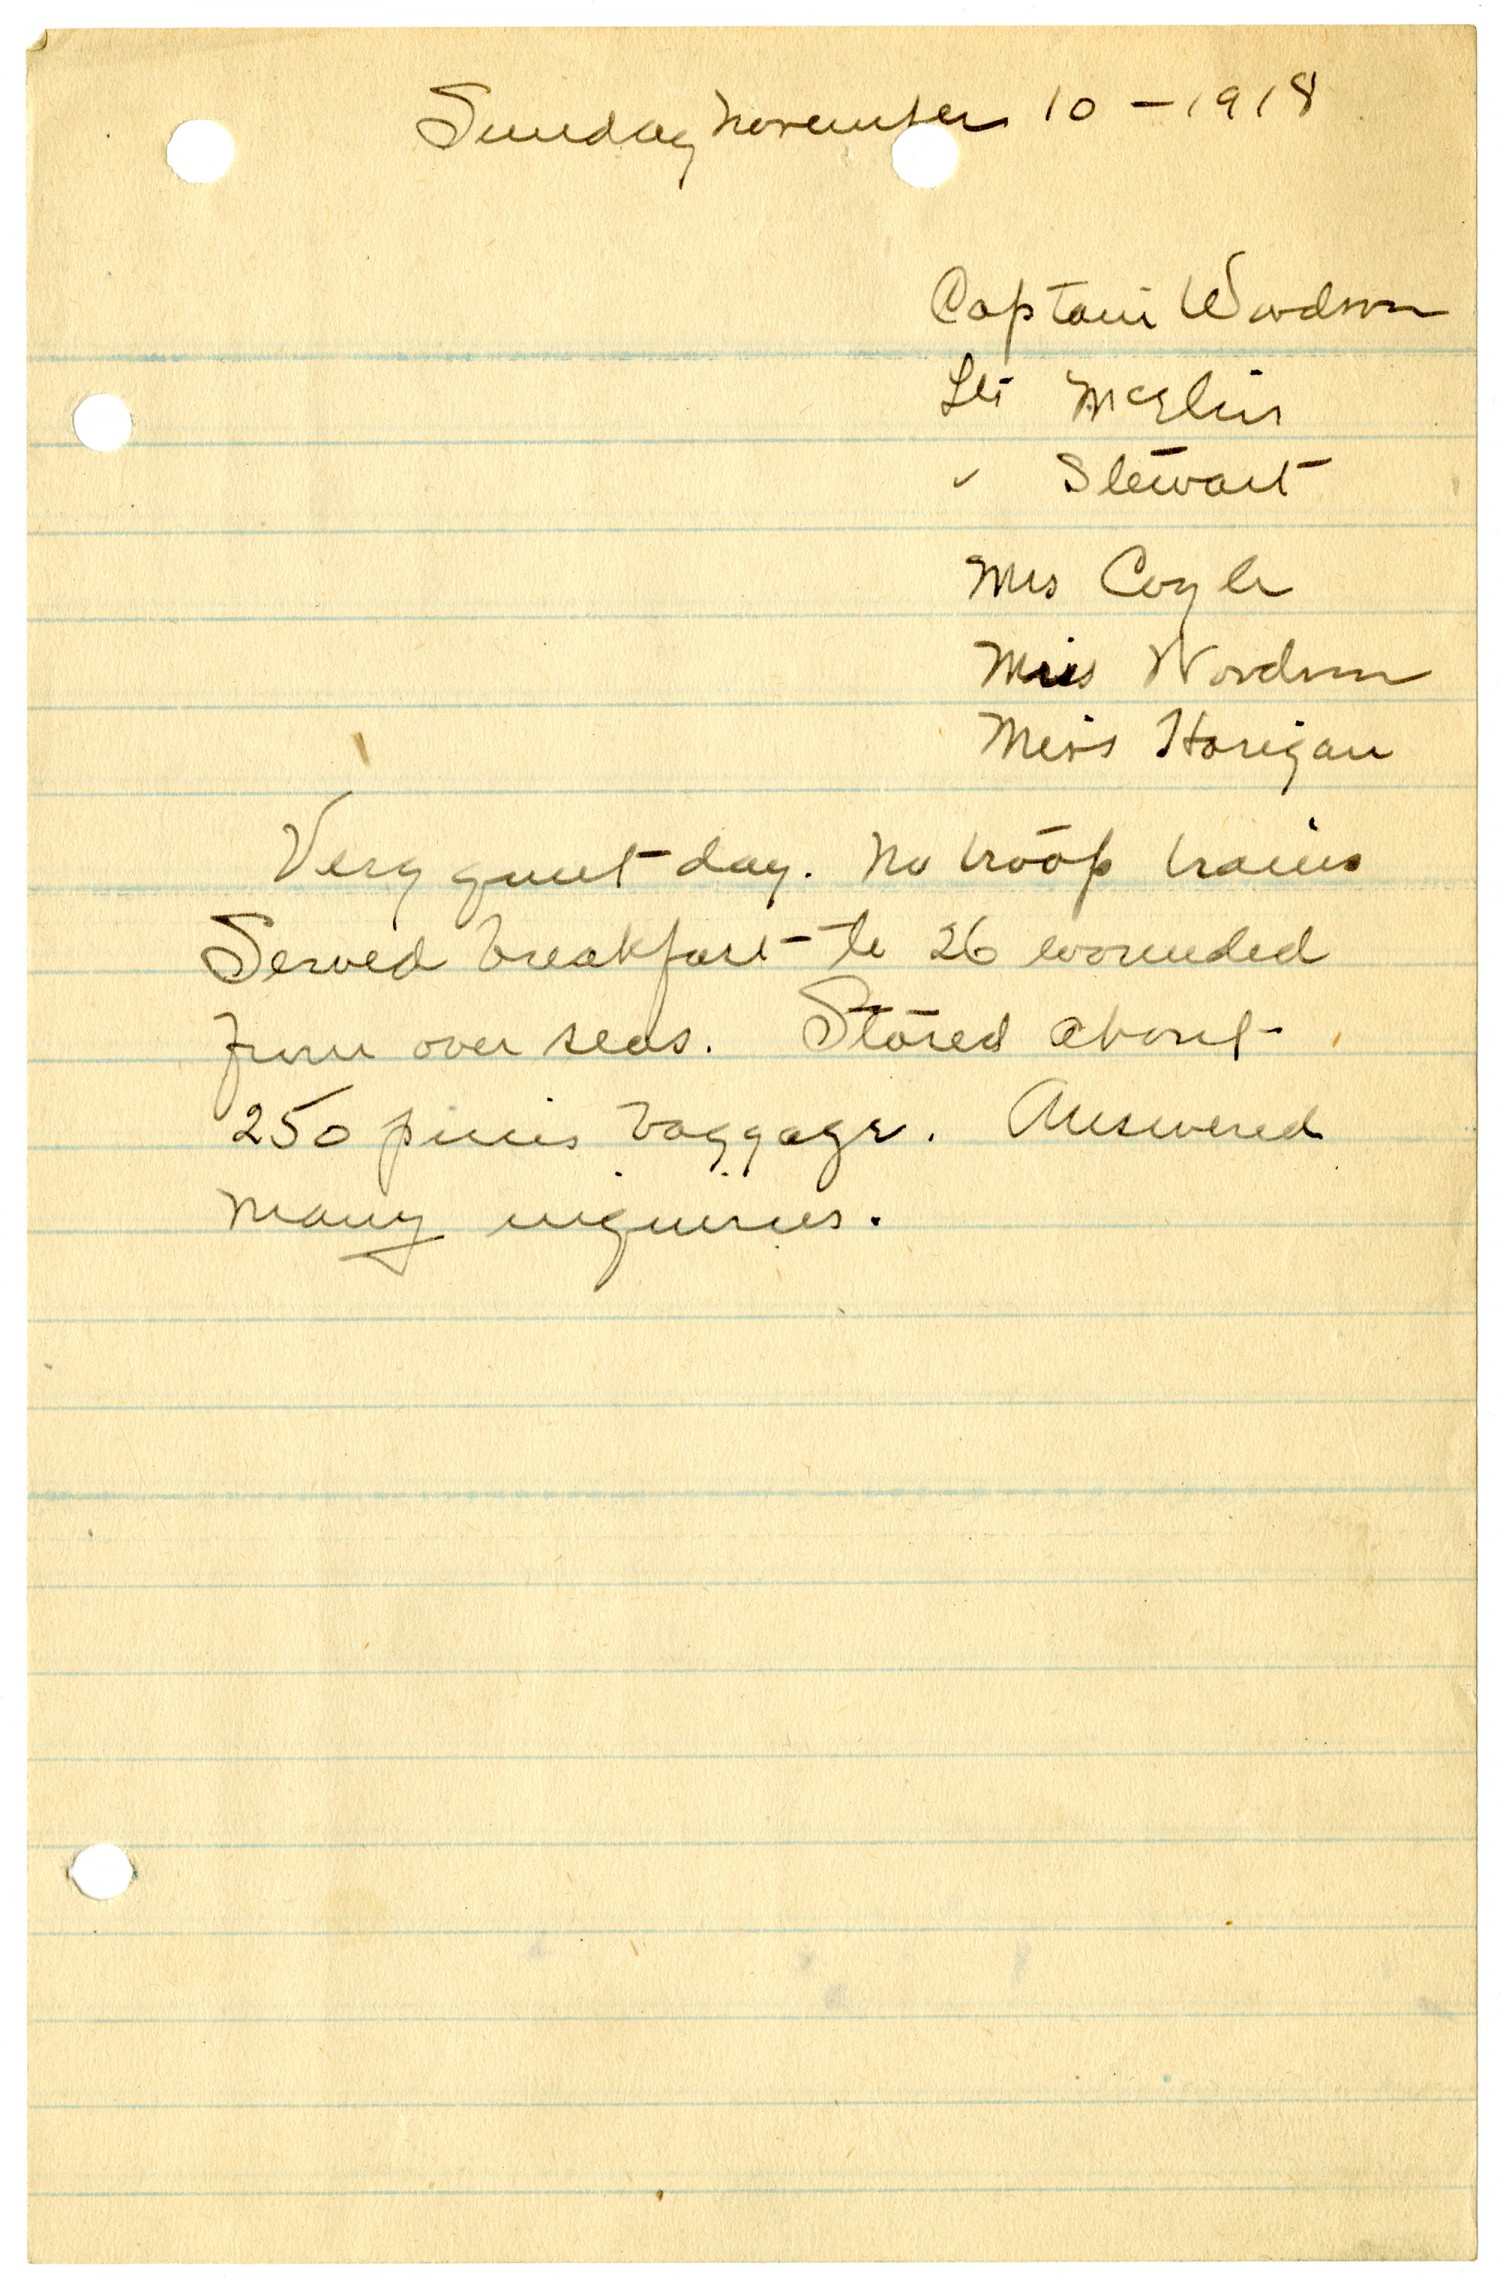 Sunday November 10 - 1918
Captain Woodson
Lt McElin
" Stewart
Mrs Coyle
Miss Woodson
Miss Horigan
Very quiet day. No troop trains
Served breakfast to 26 wounded
from over seas. Stored about
250 pieces baggage. Answered
many inquiries.